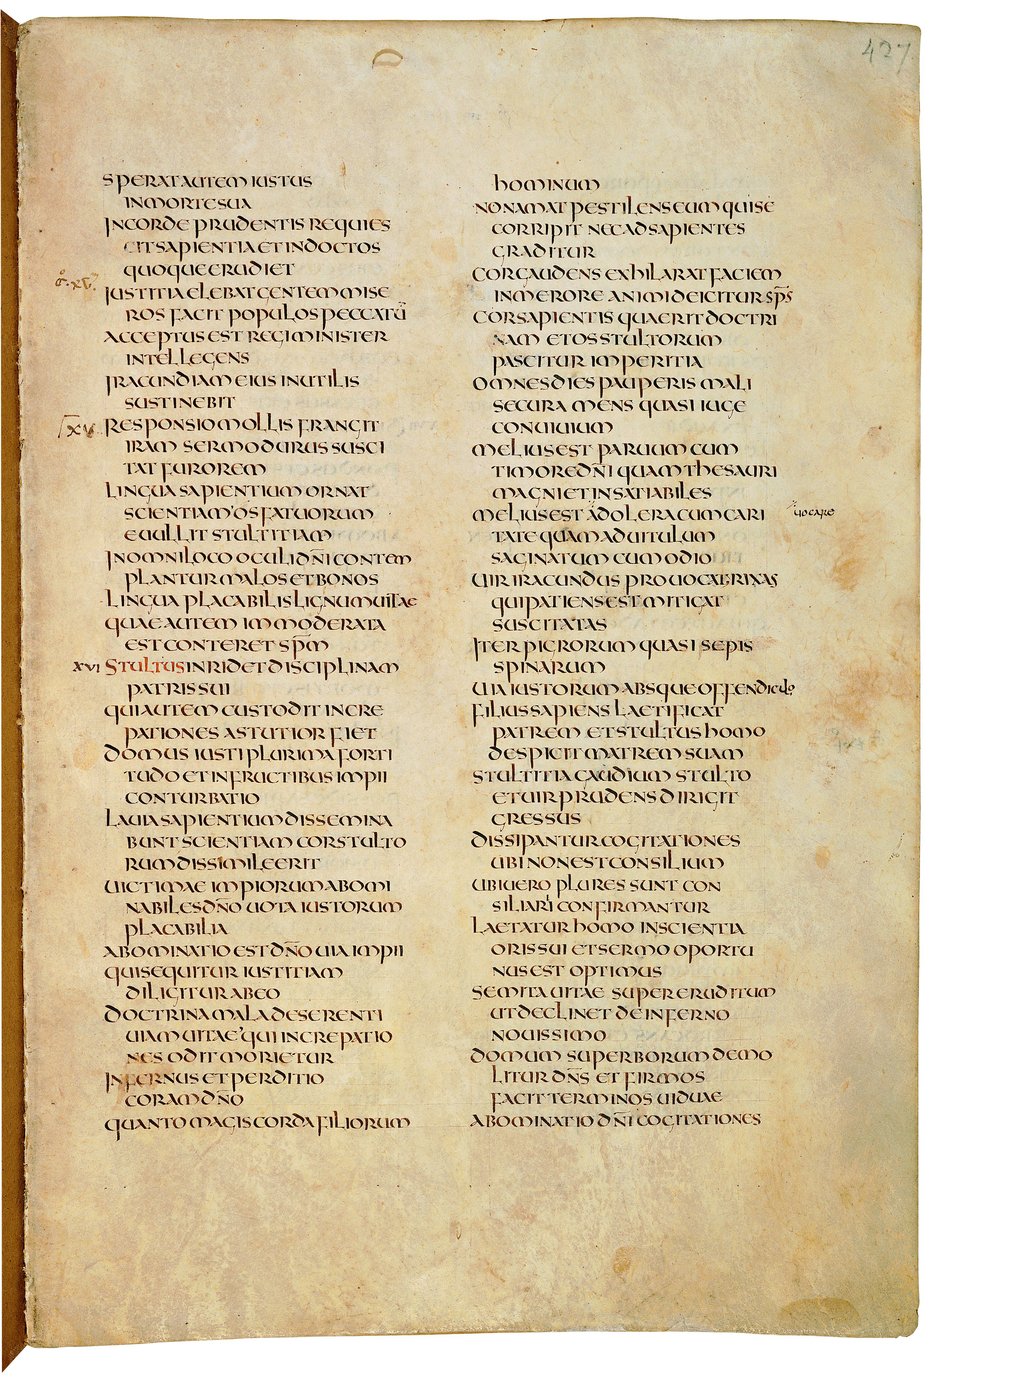 427
SPERAT AUTEM IUSTUS
IN MORTE SUA
IN CORDE PRUDENTIS REQUIES
CIT SAPIENTIA ET INDOCTOS
QUOQUE ERUDIET
IUSTITIA ELEBAT GENTEM MISE
ROS FACIT POPULOS PECCATŪ
ACCEPTUS EST REGI MINISTER
INTELLEGENS
IRACUNDIAM EIUS INUTILIS
SUSTINEBIT
XV RESPONSIO MOLLIS FRANGIT
IRAM SERMO DURUS SUSCI
TAT FUROREM
LINGUA SAPIENTIUM ORNAT
SCIENTIAM OS FATUORUM
EUULLIT STULTITIAM
IN OMNI LOCO OCULI DN̄I CONTEM
PLANTUR MALOS ET BONOS
LINGUA PLACABILIS LIGNUM UITAE
QUAE AUTEM IMMODERATA
EST CONTERET SPM̄
XVI STULTUS INRIDET DISCIPLINAM
PATRIS SUI
QUI AUTEM CUSTODIT INCRE
PATIONES ASTUTIOR FIET
DOMUS IUSTI PLURIMA FORTI
TUDO ET IN FRUCTIBUS IMPII
CONTURBATIO
LAUIA SAPIENTIUM DISSEMINA
BUNT SCIENTIAM COR STULTO
RUM DISSIMILE ERIT
UICTIMAE IMPIORUM ABOMI
NABILES DN̄O UOTA IUSTORUM
PLACABILIA
ABOMINATIO EST DN̄O UIA IMPII
QUI SEQUITUR IUSTITIAM
DILIGITUR AB EO
DOCTRINA MALA DESERENTI
UIAM UITAE QUI INCREPATIO
NES ODIT MORIETUR
INFERNUS ET PERDITIO
CORAM DN̄O
QUANTO MAGIS CORDA FILIORUM
HOMINUM
NON AMAT PESTILENS EUM QUI SE
CORRIPIT NEC AD SAPIENTES
GRADITUR
COR GAUDENS EXHILARAT FACIEM
IN MERORE ANIMI DEICITUR SPS̄
COR SAPIENTIS QUAERIT DOCTRI
NAM ET OS STULTORUM
PASCITUR IMPERITIA
OMNES DIES PAUPERIS MALI
SECURA MENS QUASI IUGE
CONUIUIUM
MELIUS EST PARUUM CUM
TIMORE DN̄I QUAM THESAURI
MAGNI ET INSATIABILES
MELIUS EST AD OLERA CUM CARI uocare
TATE QUAM AD UITULUM
SAGINATUM CUM ODIO
UIR IRACUNDUS PROUOCAT RIXAS
QUI PATIENS EST MITIGAT
SUSCITATAS
ITER PIGRORUM QUASI SEPIS
SPINARUM
UIA IUSTORUM ABSQUE OFFENDICULO
FILIUS SAPIENS LAETIFICAT
PATREM ET STULTUS HOMO
DESPICIT MATREM SUAM
STULTITIA GAUDIUM STULTO
ET UIR PRUDENS DIRIGIT
GRESSUS
DISSIPANTUR COGITATIONES
UBI NON EST CONSILIUM
UBI UERO PLURES SUNT CON
SILIARI CONFIRMANTUR
LAETATUR HOMO IN SCIENTIA
ORIS SUI ET SERMO OPORTU
NUS EST OPTIMUS
SEMITA UITAE SUPER ERUDITUM
UT DECLINET DE INFERNO
NOUISSIMO
DOMUM SUPERBORUM DEMO
LITUR DN̄S ET FIRMOS
FACIT TERMINOS UIDUAE
ABOMINATIO DN̄I COGITATIONES